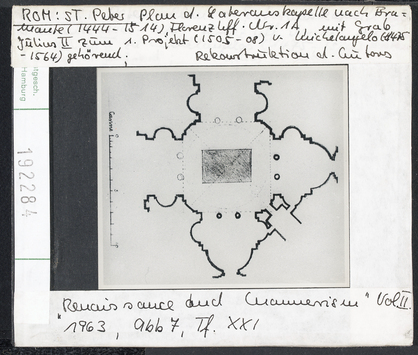 ROM: ST. Peter Plan d. Lateranskapelle nach Bra-
mante (1444-1514), Florenz Uff. Nr. 1A mit Grab
Julius II zum 1. Projekt (1505-08) v. Michelangelo (1475
-1564) gehörend. Rekonstruktion d. Autors
Hamburg
192284
"Renaissance and Mannerism" Vol II.
1963, Abb 7, Tf. XXI